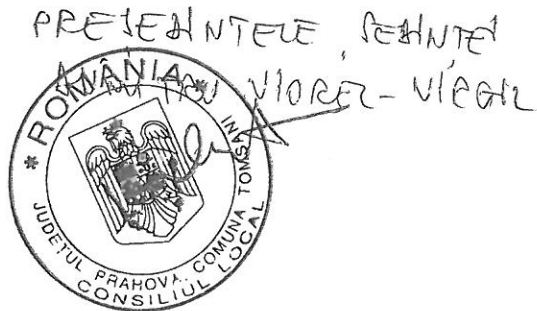 PREȘEDINTELE ȘEDINȚEI
VIOREL-VIRGIL
* ROMÂNIA *
JUDEŢUL PRAHOVA, COMUNA TOMŞANI
CONSILIUL LOCAL